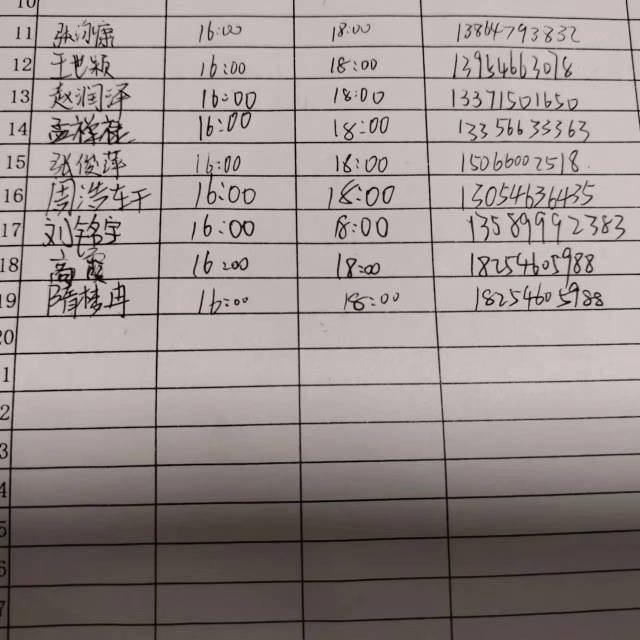 10
11 张沛康 16:00 18:00 13864793832
12 王艺颖 16:00 18:00 13954663078
13 赵润泽 16:00 18:00 13371501650
14 孟祥 16:00 18:00 13356633363
15 张俊萍 16:00 18:00 15066002518.
16 周浩轩 16:00 18:00 13054636435
17 刘铭宇 16:00 18:00 13589992383
18 高霞 16:00 18:00 18254605988
19 隋梦冉 16:00 18:00 18254605988
20
1
2
3
4
5
6
7